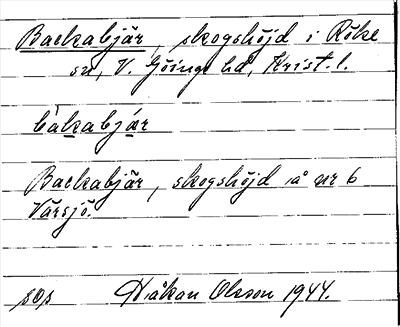 Backabjär, skogshöjd i Röke
sn, V. Göinge hd, Krist. l.
bàkabjár
Backabjär, skogshöjd å nr 6
Värsjö.
sOs Håkan Olsson 1944.